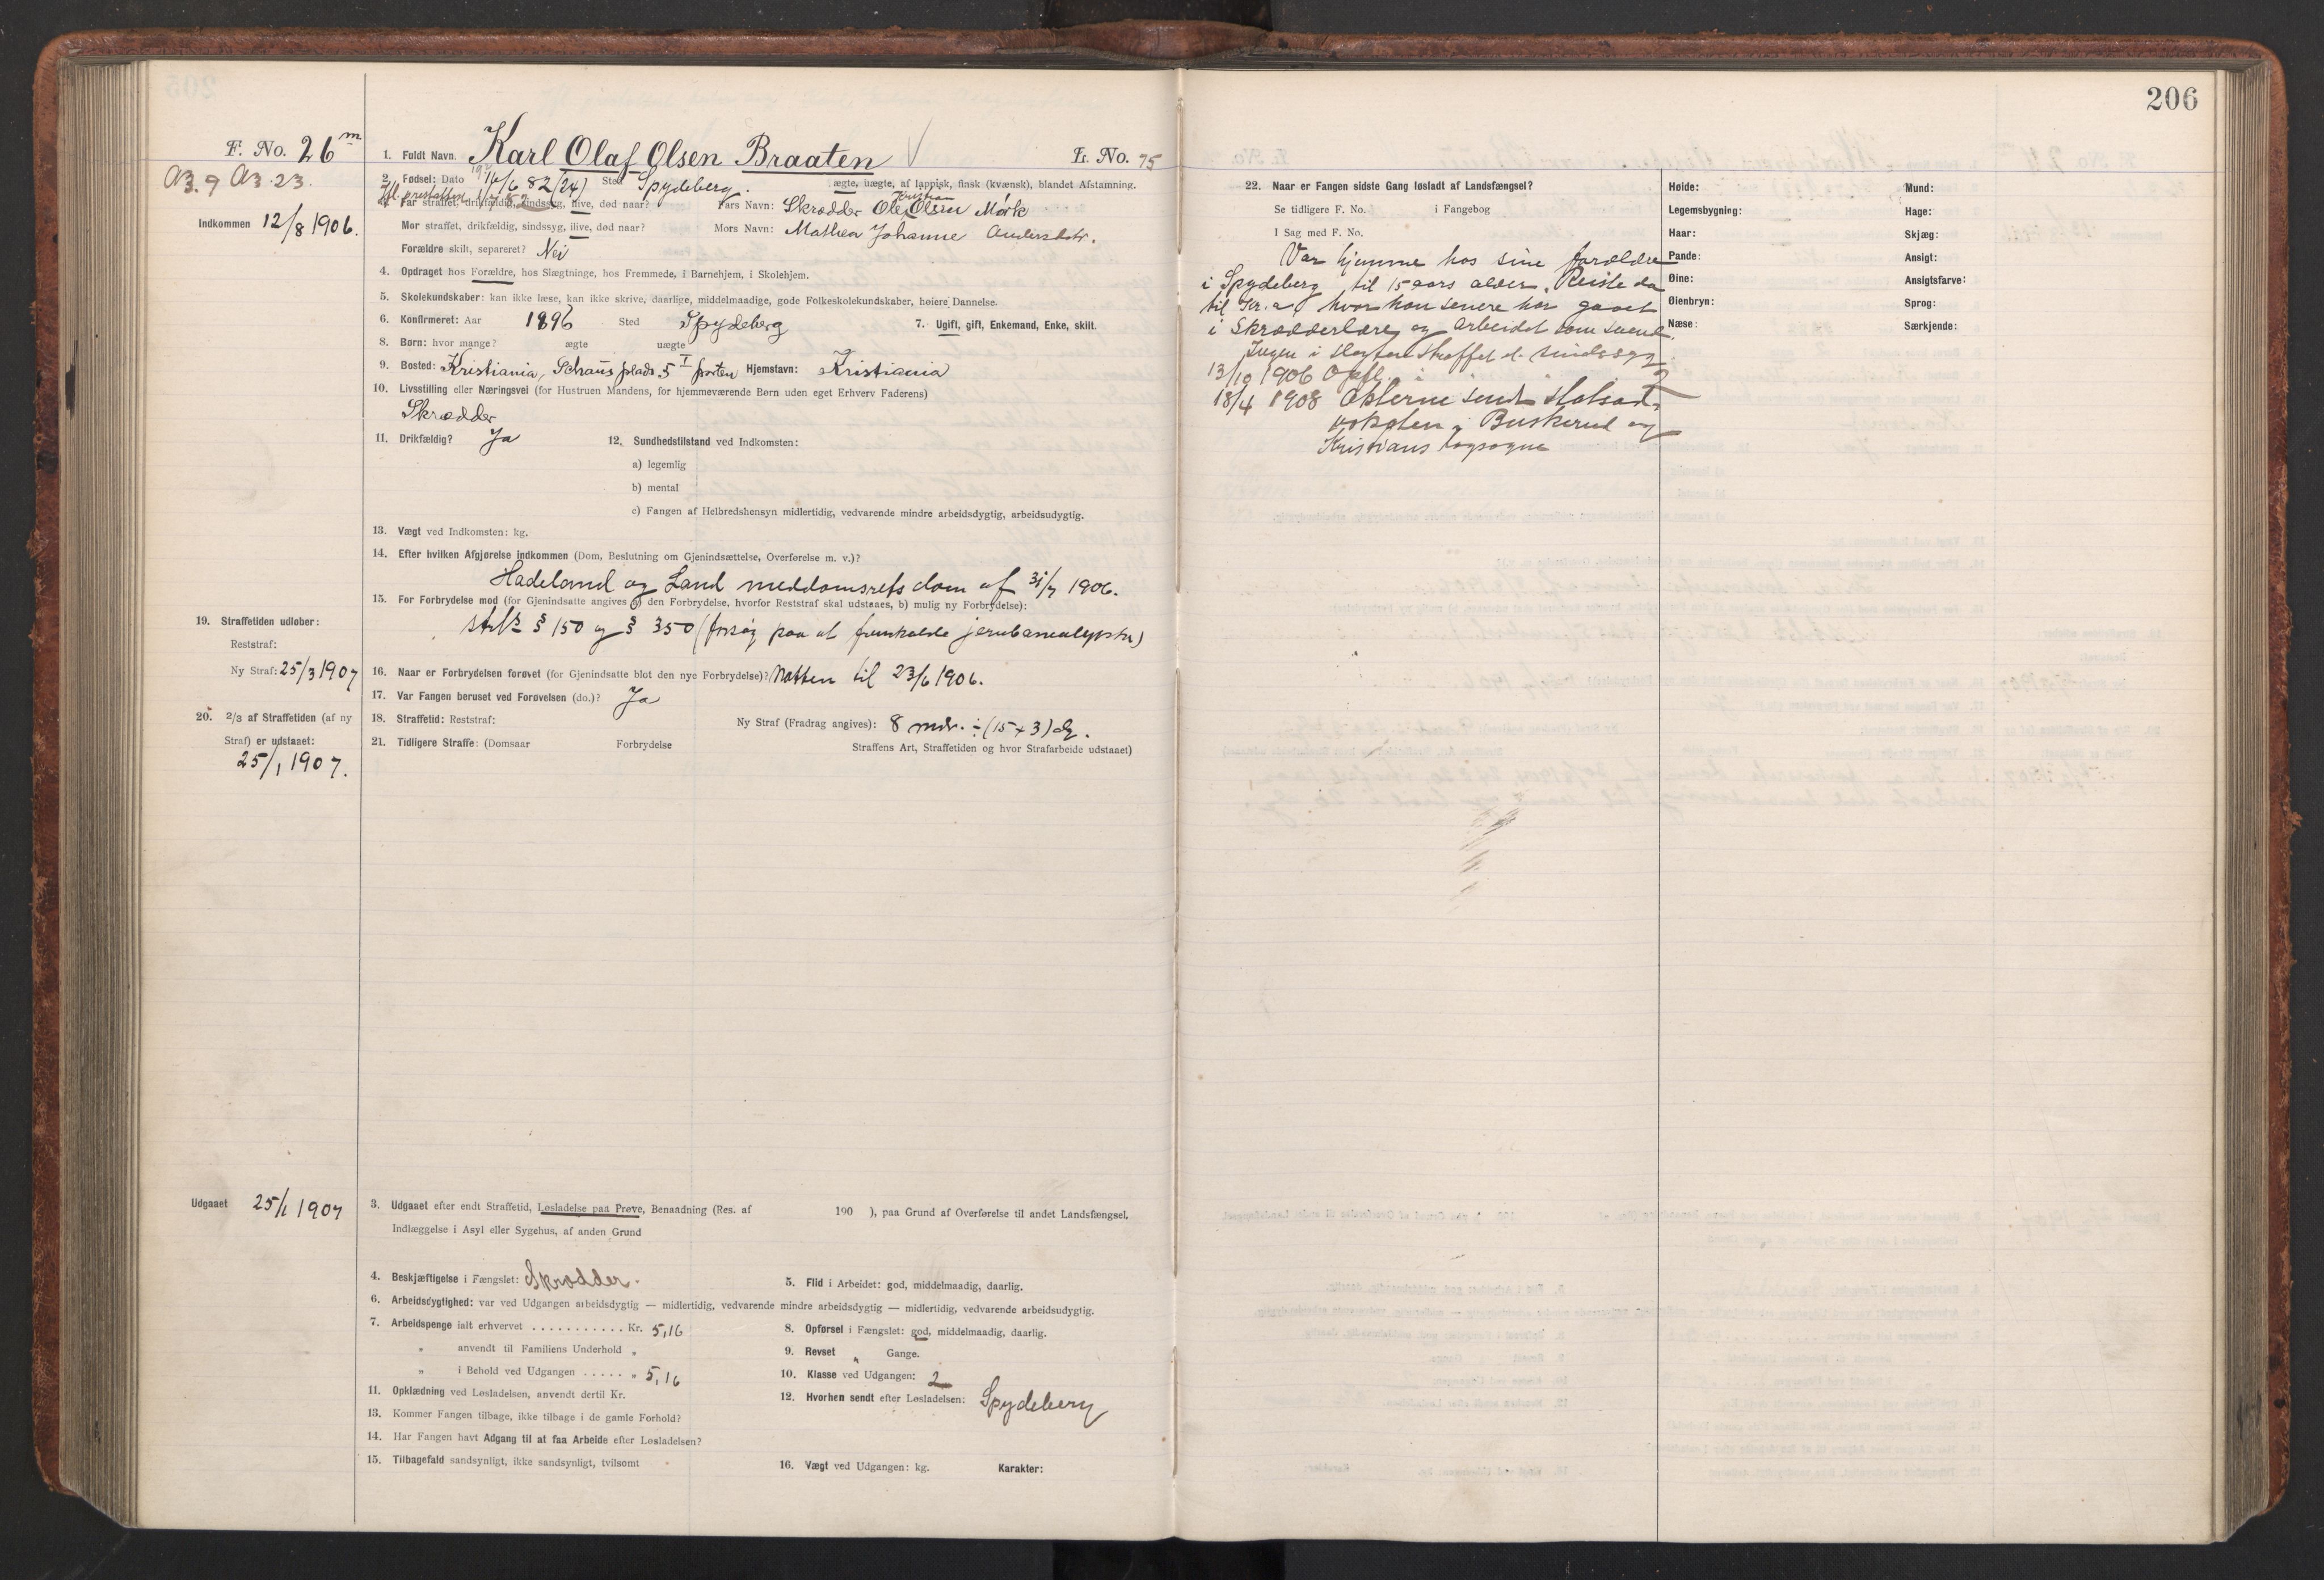 206
F. No. 26 m
1. Fuldt Navn. Karl Olaf Olsen Braaten
L. No. 75
A3.9 A3.23.
2. Fødsel: Dato 16/6 82 (24) Sted Spydeberg. ægte, uægte, af lappisk, finsk (kvænsk), blandet Afstamning.
Ifl. prestattest
Far straffet, drikfældig, sindssyg, ilive, død naar? Fars Navn: Skrædder Ole Kristian Olsen Mørk
Indkommen 12/8 1906.
Mor straffet, drikfældig, sindssyg, ilive, død naar? Mors Navn: Mathea Johanne Andersdtr.
Forældre skilt, separeret? Nei
4. Opdraget hos Forældre, hos Slægtninge, hos Fremmede, i Barnehjem, i Skolehjem.
5. Skolekundskaber: kan ikke læse, kan ikke skrive, daarlige, middelmaadige, gode Folkeskolekundskaber, høiere Dannelse.
6. Konfirmeret: Aar 1896 Sted Spydeberg 7. Ugift, gift, Enkemand, Enke, skilt.
8. Børn: hvor mange? ægte uægte
9. Bosted: Kristiania, Schous plads 5 I porten Hjemstavn: Kristiania
10. Livsstilling eller Næringsvei (for Hustruen Mandens, for hjemmeværende Børn uden eget Erhverv Faderens)
Skrædder
11. Drikfældig? Ja 12. Sundhedstilstand ved Indkomsten:
a) legemlig
b) mental
c) Fangen af Helbredshensyn midlertidig, vedvarende mindre arbeidsdygtig, arbeidsudygtig.
13. Vægt ved Indkomsten: kg.
14. Efter hvilken Afgjørelse indkommen (Dom, Beslutning om Gjenindsættelse, Overførelse m. v.)?
Hadeland og Land meddomsrets dom af 31/7 1906.
15. For Forbrydelse mod (for Gjenindsatte angives a) den Forbrydelse, hvorfor Reststraf skal udstaaes, b) mulig ny Forbrydelse):
§ 150 og § 350 (forsøg paa at fremkalde jernbaneulykke)
19. Straffetiden udløber:
Reststraf:
Ny Straf: 25/3 1907
16. Naar er Forbrydelsen forøvet (for Gjenindsatte blot den nye Forbrydelse)? Natten til 23/6 1906.
17. Var Fangen beruset ved Forøvelsen (do.)? Ja
20. 2/3 af Straffetiden (af ny Straf) er udstaaet:
25/1 1907.
18. Straffetid: Reststraf: Ny Straf (Fradrag angives): 8 mdr. ÷ (15 + 3) dg.
21. Tidligere Straffe: (Domsaar Forbrydelse Straffens Art, Straffetiden og hvor Strafarbeide udstaaet)
Udgaaet 25/1 1907
3. Udgaaet efter endt Straffetid, Løsladelse paa Prøve, Benaadning (Res. af 190 ), paa Grund af Overførelse til andet Landsfængsel,
Indlæggelse i Asyl eller Sygehus, af anden Grund
4. Beskjæftigelse i Fængslet: Skrædder. 5. Flid i Arbeidet: god, middelmaadig, daarlig.
6. Arbeidsdygtighed: var ved Udgangen arbeidsdygtig — midlertidig, vedvarende mindre arbeidsdygtig — midlertidig, vedvarende arbeidsudygtig.
7. Arbeidspenge ialt erhvervet ........... Kr. 5,16 8. Opførsel i Fængslet: god, middelmaadig, daarlig.
" anvendt til Familiens Underhold " 9. Revset " Gange.
" i Behold ved Udgangen ..... " 5,16 10. Klasse ved Udgangen: 2
11. Opklædning ved Løsladelsen, anvendt dertil Kr. 12. Hvorhen sendt efter Løsladelsen: Spydeberg
13. Kommer Fangen tilbage, ikke tilbage i de gamle Forhold?
14. Har Fangen havt Adgang til at faa Arbeide efter Løsladelsen?
15. Tilbagefald sandsynligt, ikke sandsynligt, tvilsomt 16. Vægt ved Udgangen: kg. Karakter:
22. Naar er Fangen sidste Gang løsladt af Landsfængsel?
Se tidligere F. No. i Fangebog
I Sag med F. No.
Var hjemme hos sine forældre
i Spydeberg til 15 aars alder. Reiste da
til Kr.a hvor han senere har gaaet
i Skrædderlære og arbeidet som svend.
Ingen i slægten straffet el. sindssyg
13/10 1906 Opfl.
18/4 1908 Akterne sendt Statsad-
vokaten i Buskerud og
Kristians lagsogne
Høide: Mund:
Legemsbygning: Hage:
Haar: Skjæg:
Pande: Ansigt:
Øine: Ansigtsfarve:
Øienbryn: Sprog:
Næse: Særkjende: